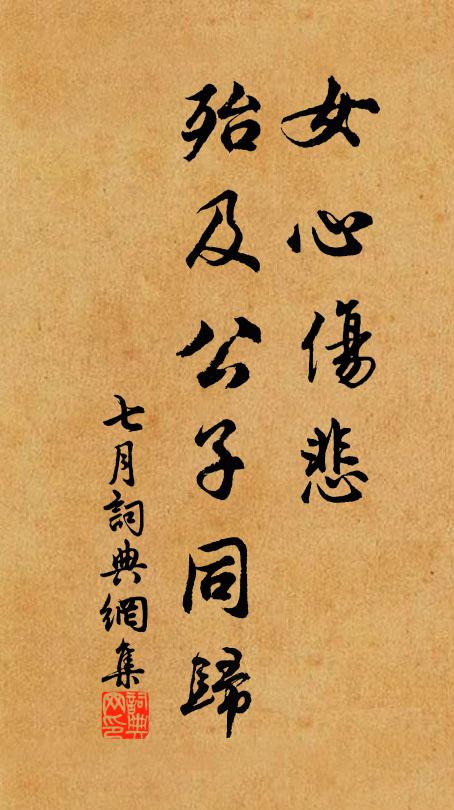 女心傷悲
殆及公子同歸
七月詞典網集
詞典网印